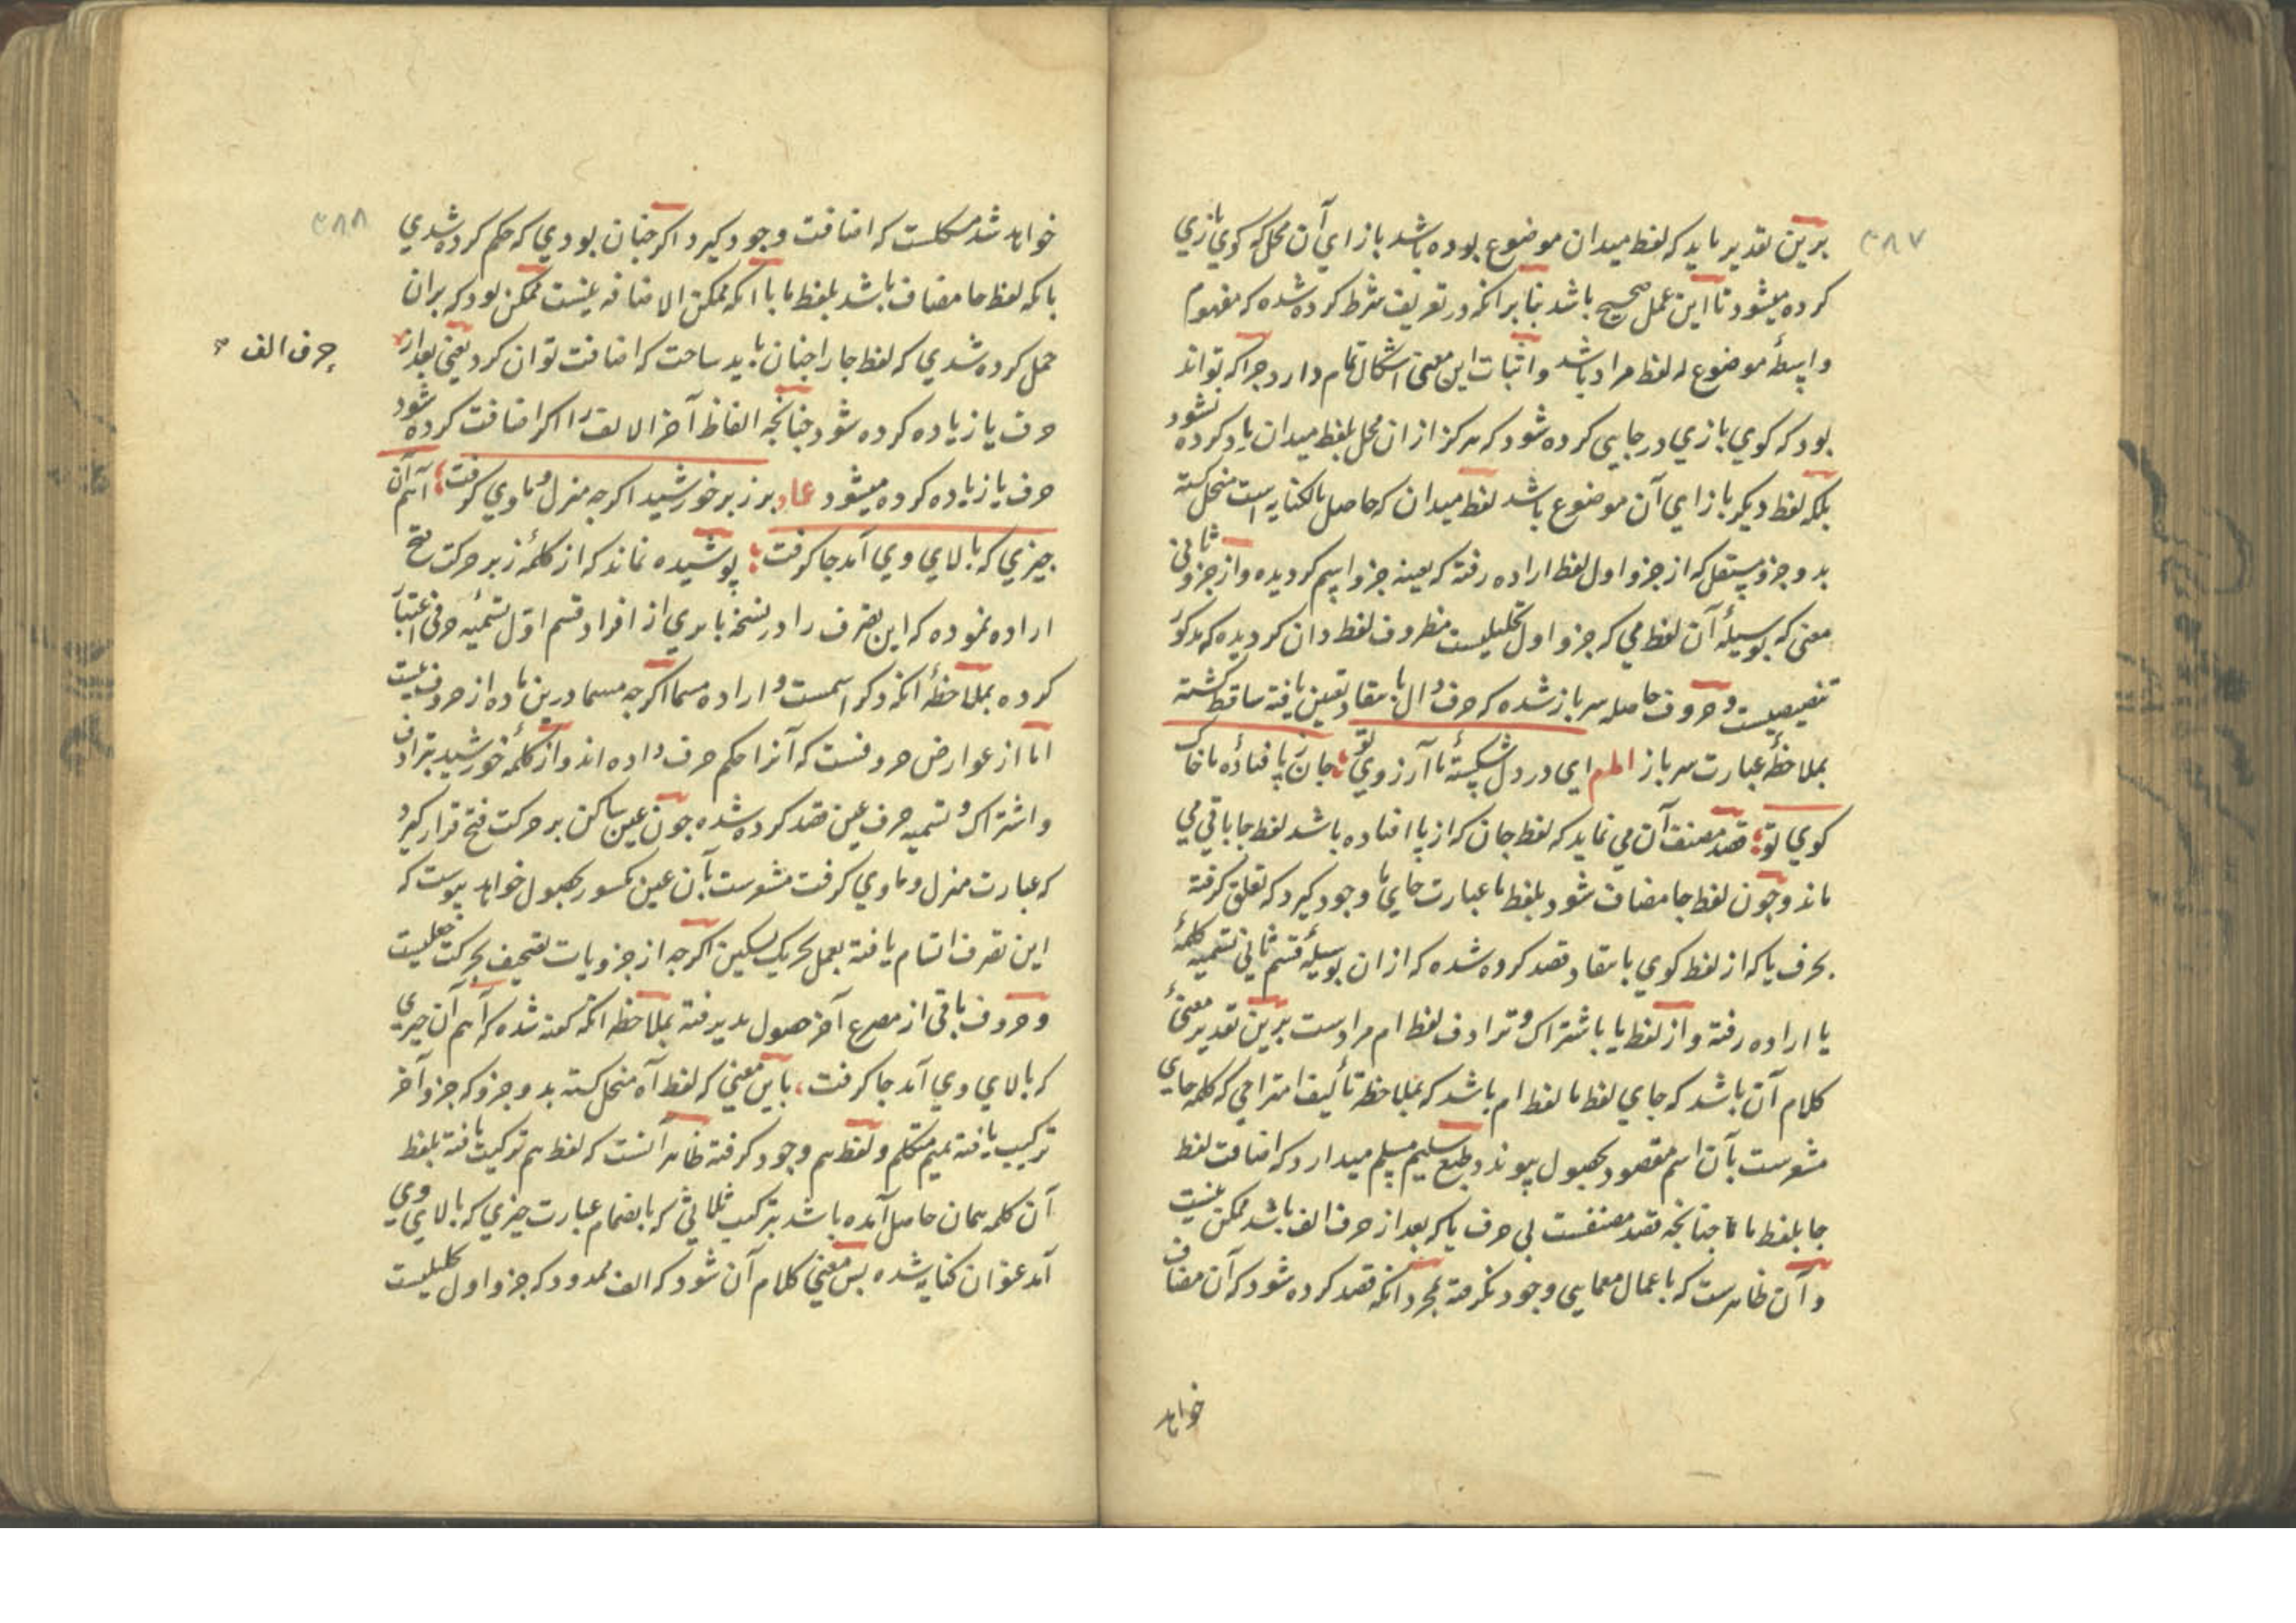 ۳۸۷
برین تقدیر باید که لفظ میدان موضوع بوده باشد بازای آن محل که کوی بازی
کرده میشود تا این عمل صحیح باشد بنا برانکه در تعریف شرط کرده شده که مفهوم
واسطهٔ موضوع له لفظ مراد باشد و اثبات این معنی اشکال تمام دارد جرا که تواند
بود که کوی بازی در جایی کرده شود که هرکز ازان محل بلفظ میدان یاد کرده نشود
بلکه لفظ دیکر بازای آن موضوع باشد لفظ میدان که حاصل بالکنایه است منحل کشته
بدو جزو مستقل که از جزو اول لفظ اراده رفته که بعینه جزو اسم کردیده و از جزو ثانی
معنی که بوسیلهٔ آن لفظ می که جزو اول تحلیلیست مظروف لفظ دان کردیده که مذکور
تنصیصیست و حروف حاصله سر باز شده که حرف دال بانتقاد تعیین یافته ساقط کشته
بملاحظهٔ عبارت سر باز امام ای در دل شکستهٔ ما آرزوی تو جان ز پا فتادهٔ ما خاک
کوی تو قصد مصنف آن می نماید که لفظ جان که از پا افتاده باشد لفظ جا باقی می
ماند و جون لفظ جا مضاف شود بلفظ ما عبارت جای ما وجود کیرد که تعلق کرفته
بحرف یا که از لفظ کوی بانتقاد قصد کرده شده که ازان بوسیلهٔ قسم ثانی تسمیه کلمهٔ
یا اراده رفته و از لفظ یا باشتراک و ترادف لفظ ام مرادست برین تقدیر معنیٔ
کلام آن باشد که جای لفظ ما لفظ ام باشد که بملاحظه تألیف امتزاجی که کلمه جای
مشعرست بآن اسم مقصود بحصول پیوندد و طبع سلیم مسلم میدارد که اضافت لفظ
جا بلفظ ما تا جنانجه قصد مصنفست بی حرف یا که بعد از حرف الف باشد ممکن نیست
و آن ظاهرست که باعمال معمایی وجود نکرفته بمجرد انکه قصد کرده شود که آن مضاف
خواهد
۳۸۸
خواهد شد مسکلست که اضافت وجود کیرد اکر جنان بودی که حکم کرده شدی
بانکه لفظ جا مضاف باشد بلفظ ما با انکه ممکن الاضافه نیست ممکن بود که بران
حمل کرده شدی که لفظ جا را جنان باید ساخت که اضافت توان کرد یعنی بعد از
حرف الف
حرف یا زیاده کرده شود جنانجه الفاظ آخر الالف را اکر اضافت کرده شود
حرف یا زیاده کرده میشود عماد بر زبر خورشید اکرجه منزل و ماوی کرفت آهم آن
جیزی که بالای وی آمد جا کرفت پوشیده نماند که از کلمهٔ زبر حرکت فتح
اراده نموده که این تصرف را در نسخهٔ بابری از افراد قسم اول تسمیه حرفی اعتبار
کرده بملاحظهٔ انکه ذکر اسمست و اراده مسما اکرجه مسما درین ماده از حروف نیست
اما از عوارض حروفست که آنرا حکم حرف داده اند و از کلمهٔ خورشید بترادف
و اشتراک و تسمیه حرف عین قصد کرده شده جون عین ساکن بر حرکت فتح قرار کیرد
که عبارت منزل و ماوی کرفت مشعرست بآن عین مکسور بحصول خواهد پیوست که
این تصرف اتسام یافته بعمل تحریک تسکین اکرجه از جزویات تصحیف بحرکت جعلیست
و حروف باقی از مصرع آخر حصول پذیرفته بملاحظه انکه کفته شده که آهم آن جیزی
که بالای وی آمد جا کرفت، باین معنی که لفظ آه منحل کشته بدو جزو که جزو آخر
ترکیب یافته بمیم متکلم و لفظ هم وجود کرفته ظاهر آنست که لفظ هم ترکیب یافته بلفظ
آن کلمه همان حاصل آمده باشد بترکیب ثلاثی که بانضمام عبارت جیزی که بالای وی
آمد عنوان کنایه شده پس معنی کلام آن شود که الف ممدود که جزو اول تحلیلیست